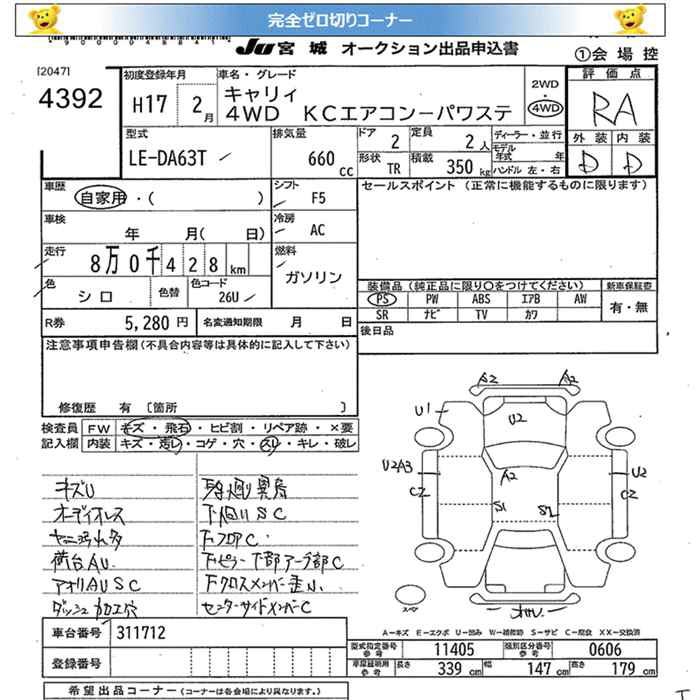 完全ゼロ切りコーナー
JU 宮城 オークション出品申込書
①会場控
[2047]
4392
初度登録年月
H17 2月
車名・グレード
キャリィ
4WD KCエアコンーパワステ
2WD
・
4WD
評価点
RA
外装 内装
D D
型式
LE-DA63T
排気量
660 cc
ドア 2
定員 2人
形状 TR
積載 350kg
ディーラー・並行
モデル年式 年
ハンドル 左・右
車歴
自家用・( )
シフト F5
セールスポイント (正常に機能するものに限ります)
車検
年 月( 日)
冷房 AC
走行
8万0千428km
燃料
ガソリン
色
シロ
色替
色コード
26U
装備品 (純正品に限り○をつけてください)
新車保証書
PS PW ABS エアB AW
SR ナビ TV カワ
有・無
R券 5,280円
名変通知期限 月 日
後日品
注意事項申告欄(不具合内容等は具体的に記入して下さい)
修復歴 有 〔箇所 〕
検査員記入欄
FW キズ・飛石・ヒビ割・リペア跡・×要
内装 キズ・汚レ・コゲ・穴・スレ・キレ・破レ
キズU
オーディオレス
ヤニ汚れ多
荷台AU
アオリAUSC
ダッシュ加工穴
下廻りSC
下フロアC
下ピラー下部アーチ部C
下クロスメンバー歪小
センターサイドメンバーC
A2 A2
U1
U2
U2A3
CZ
A2
S1 S1
U2
CZ
スペヤ
A-キズ E-エクボ U-凹み W-補修跡 S-サビ C-腐食 XX-交換済
車台番号 311712
登録番号
型式指定番号 参考 11405
類別区分番号 参考 0606
車庫証明用 参考 長さ 339cm 幅 147cm 高さ 179cm
希望出品コーナー (コーナーは各会場により異なります。)